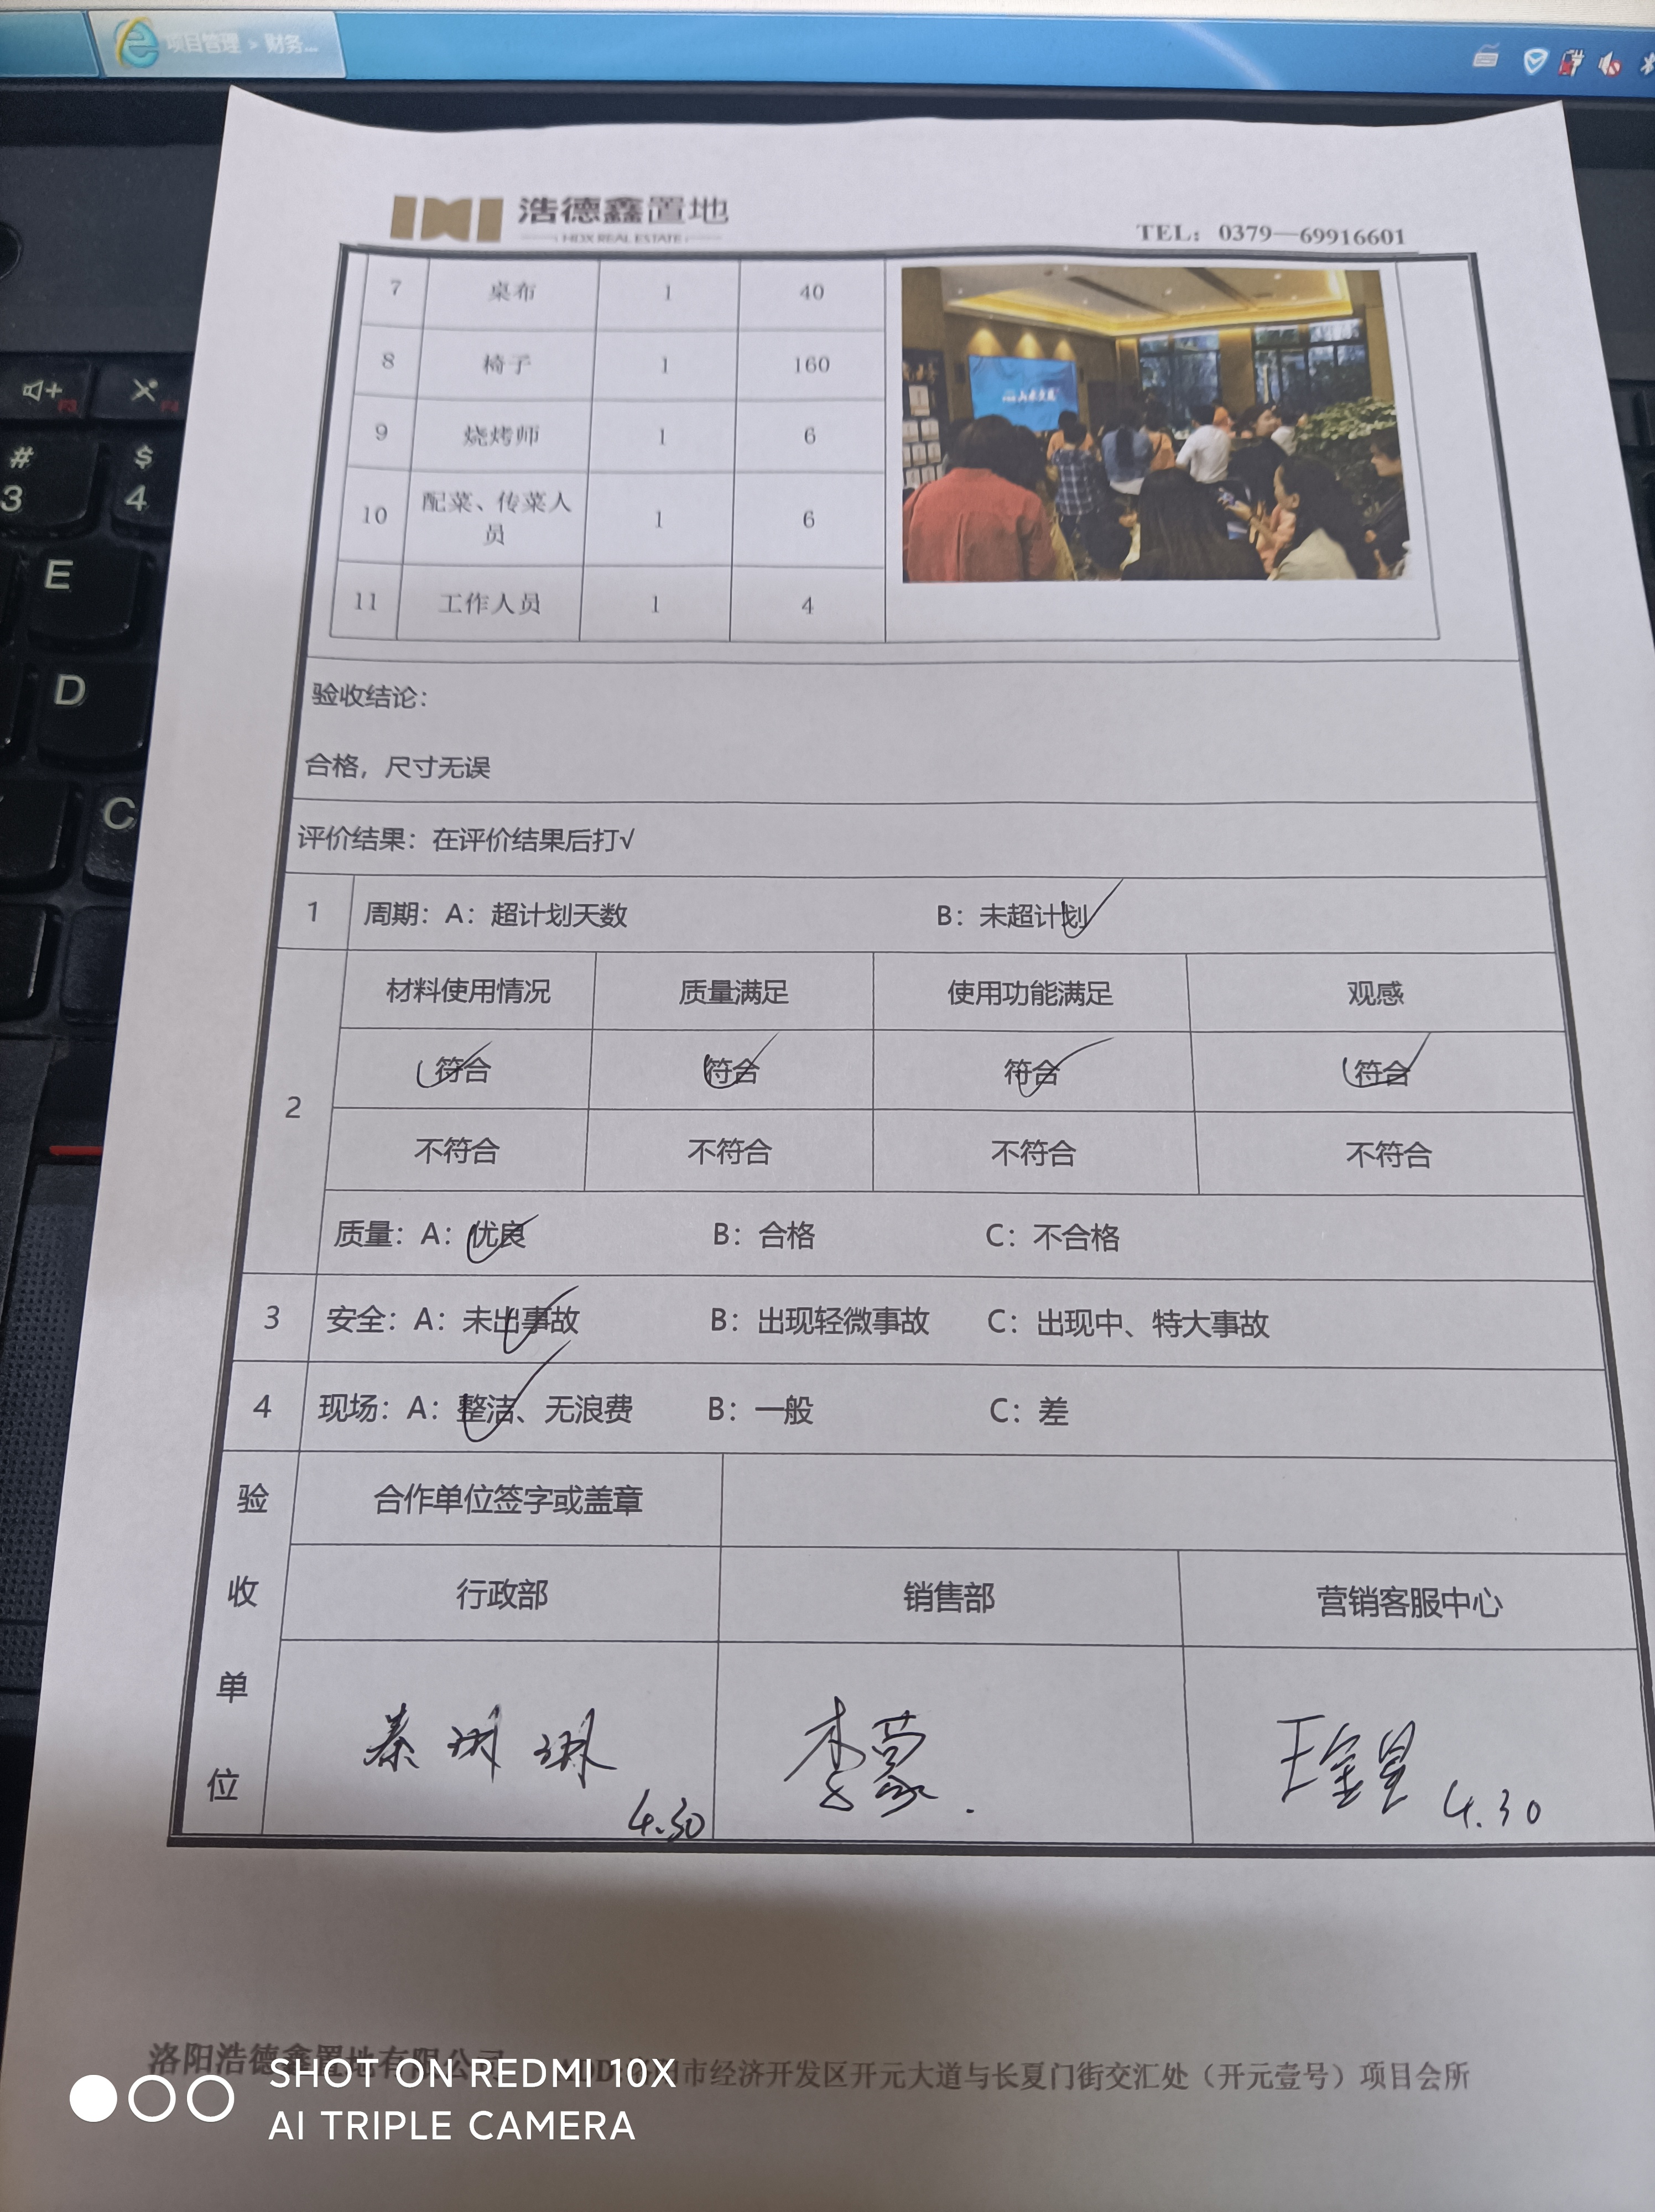 项目管理 > 财务...
浩德鑫置地
HDX REAL ESTATE
TEL：0379—69916601
7 桌布 1 40
8 椅子 1 160
9 烧烤师 1 6
10 配菜、传菜人员 1 6
11 工作人员 1 4
验收结论：
合格，尺寸无误
评价结果：在评价结果后打√
1 周期：A：超计划天数 B：未超计划 √
2 材料使用情况 质量满足 使用功能满足 观感
符合 √ 符合 √ 符合 √ 符合 √
不符合 不符合 不符合 不符合
质量：A：优良 √ B：合格 C：不合格
3 安全：A：未出事故 √ B：出现轻微事故 C：出现中、特大事故
4 现场：A：整洁、无浪费 √ B：一般 C：差
验收单位
合作单位签字或盖章
行政部 销售部 营销客服中心
秦 李蒙 王
4.30 4.30
洛阳浩德鑫置地有限公司 市经济开发区开元大道与长夏门街交汇处（开元壹号）项目会所
SHOT ON REDMI 10X
AI TRIPLE CAMERA
# 3 $ 4
F3 F4
E
D
C